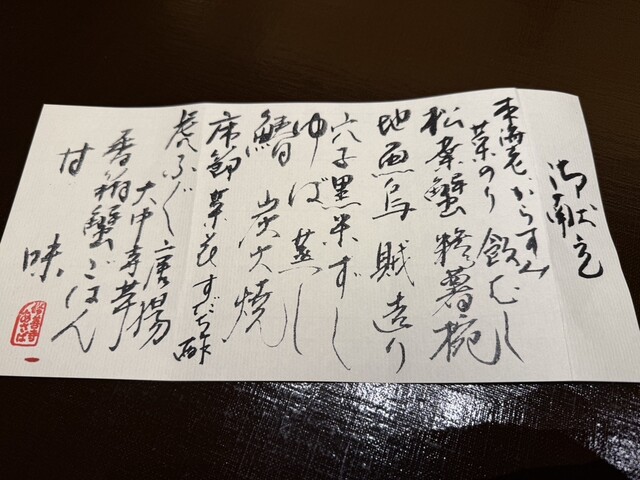 御献立
車海老 からすみ
のり 飯むし
松葉蟹 糝薯椀
烏賊造り
穴子黒米ずし
ゆば蒸し
鰆 炭火焼
床節 菜花 すだち酢
虎ふぐ唐揚
大中寺芋
香箱蟹ごはん
甘味